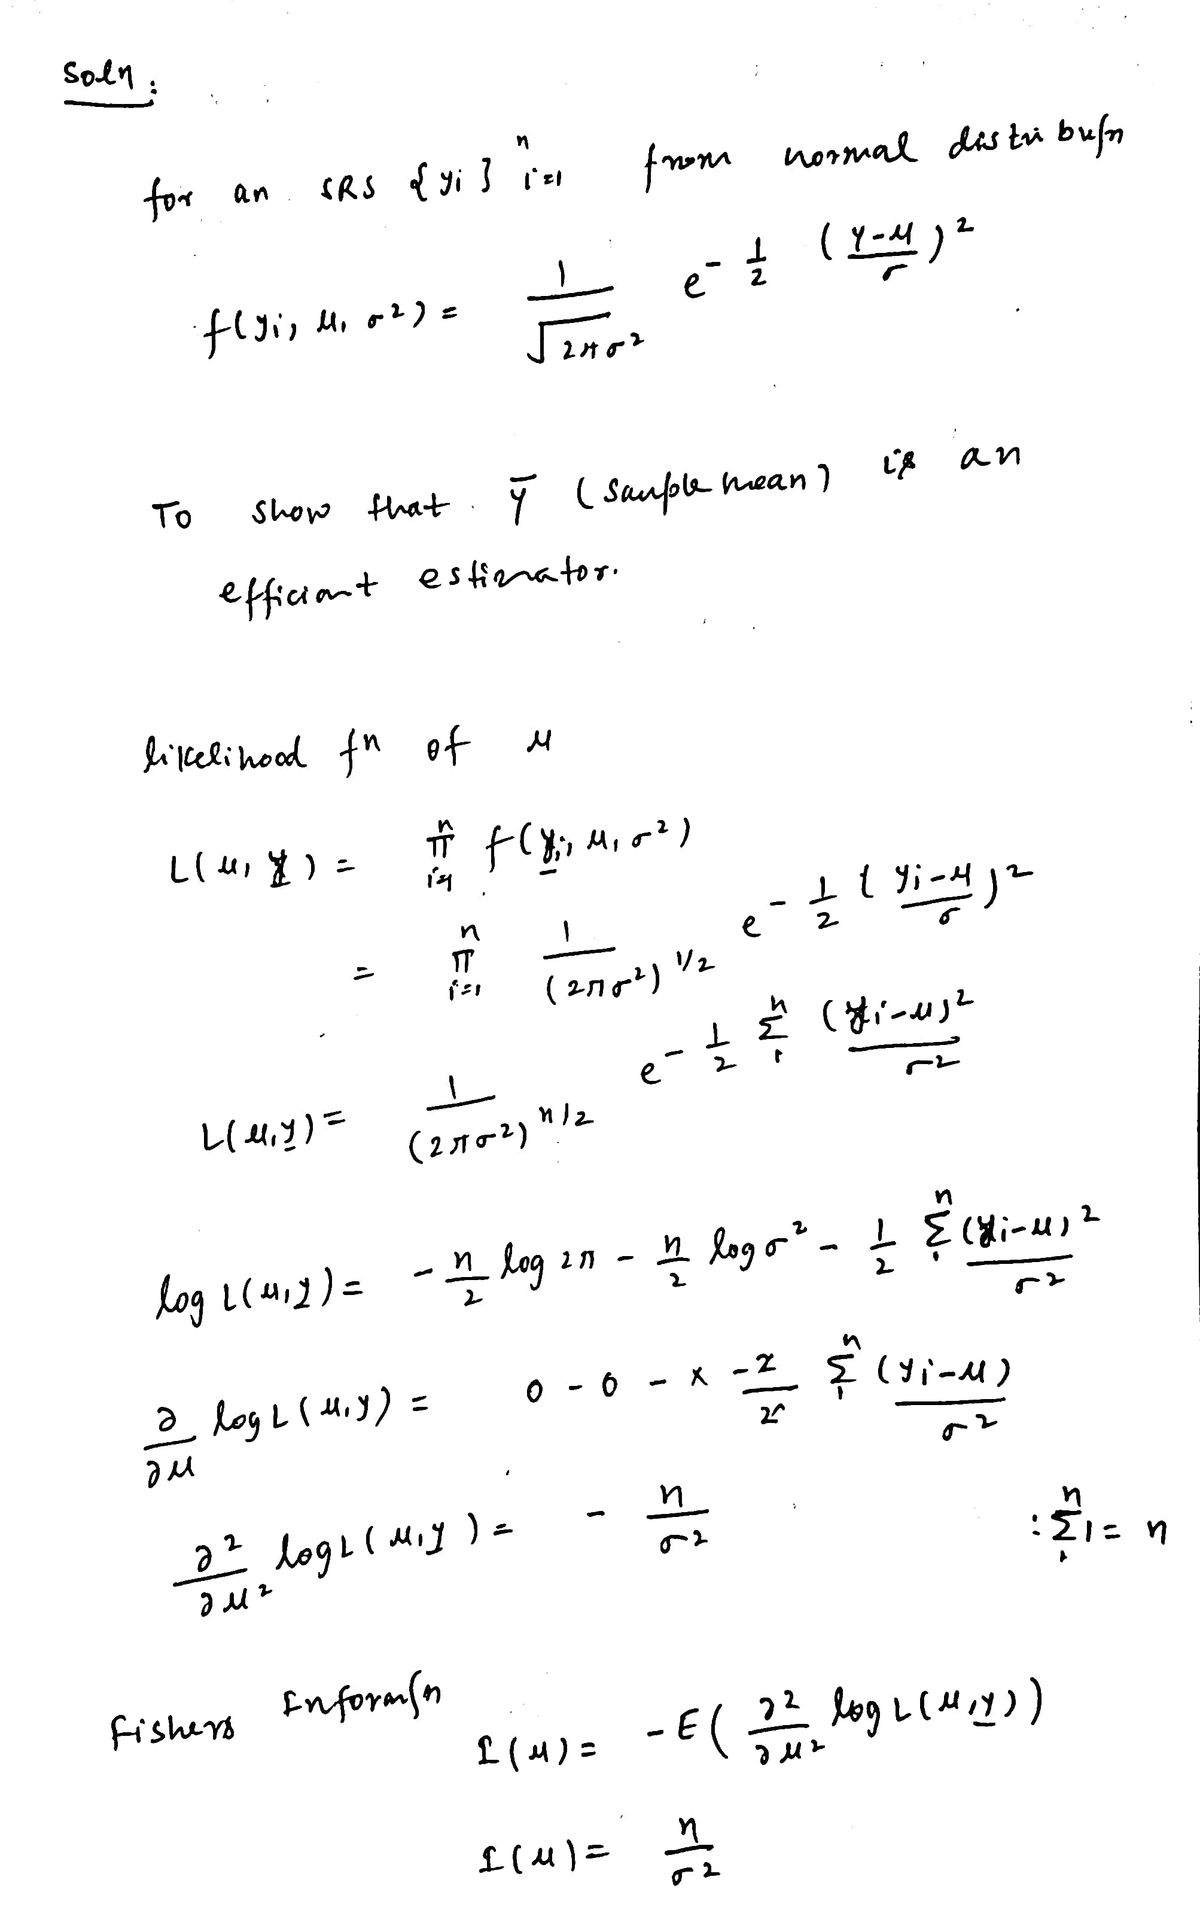 Soln :
for an SRS {yi}ⁿi=1 from normal distribufn
f(yi, μ, σ²) = 1/√2πσ² e^-1/2 (y-μ/σ)²
To show that ȳ (sample mean) is an
efficient estimator.
likelihood fn of μ
L(μ, y) = π^n_i=1 f(yi, μ, σ²)
= π^n_i=1 1/(2πσ²)^1/2 e^-1/2 (yi-μ/σ)²
L(μ,y) = 1/(2πσ²)^n/2 e^-1/2 Σ^n_1 (yi-μ)²/σ²
log L(μ,y) = -n/2 log 2π - n/2 log σ² - 1/2 Σ^n_1 (yi-μ)²/σ²
∂/∂μ log L(μ,y) = 0 - 0 - x -2/2 Σ^n_1 (yi-μ)/σ²
∂²/∂μ² log L(μ,y) = - n/σ² : Σ^n_1 1 = n
Fishers Informafn
I(μ) = -E(∂²/∂μ² log L(μ,y))
I(μ) = n/σ²